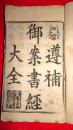 遵補
御案書經
大全